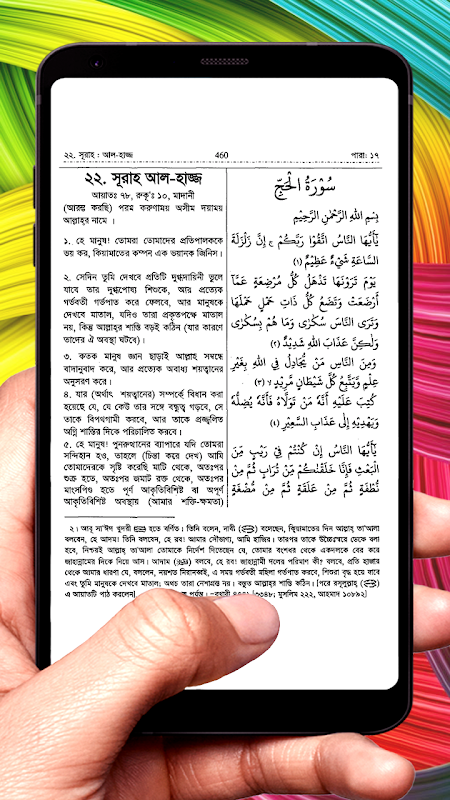 ২২. সূরাহ : আল-হাজ্জ
460
পারা: ১৭
২২. সূরাহ আল-হাজ্জ
আয়াতঃ ৭৮, রুকূ‘ঃ ১০, মাদানী
(আরম্ভ করছি) পরম করুণাময় অসীম দয়াময়
আল্লাহর নামে ।
১. হে মানুষ! তোমরা তোমাদের প্রতিপালককে
ভয় কর, কিয়ামাতের কম্পন এক ভয়ানক জিনিস।
২. সেদিন তুমি দেখবে প্রতিটি দুগ্ধদায়িনী ভুলে
যাবে তার দুগ্ধপোষ্য শিশুকে, আর প্রত্যেক
গর্ভবতী গর্ভপাত করে ফেলবে, আর মানুষকে
দেখবে মাতাল, যদিও তারা প্রকৃতপক্ষে মাতাল
নয়, কিন্তু আল্লাহর শাস্তি বড়ই কঠিন (যার কারণে
তাদের ঐ অবস্থা ঘটবে)।
৩. কতক মানুষ জ্ঞান ছাড়াই আল্লাহ সম্বন্ধে
বাদানুবাদ করে, আর প্রত্যেক অবাধ্য শয়ত্বানের
অনুসরণ করে।
৪. যার (অর্থাৎ শয়ত্বানের) সম্পর্কে বিধান করা
হয়েছে যে, যে কেউ তার সঙ্গে বন্ধুত্ব গড়বে, সে
তাকে বিপথগামী করবে, আর তাকে প্রজ্জ্বলিত
অগ্নি শাস্তির দিকে পরিচালিত করবে।
৫. হে মানুষ! পুনরুত্থানের ব্যাপারে যদি তোমরা
সন্দিহান হও, তাহলে (চিন্তা করে দেখ) আমি
তোমাদেরকে সৃষ্টি করেছি মাটি থেকে, অতঃপর
শুক্র হতে, অতঃপর জমাট রক্ত থেকে, অতঃপর
মাংসপিণ্ড হতে পূর্ণ আকৃতিবিশিষ্ট বা অপূর্ণ
আকৃতিবিশিষ্ট অবস্থায় (আমার শক্তি-ক্ষমতা)
سُوْرَةُ الْحَجِّ
بِسْمِ اللهِ الرَّحْمٰنِ الرَّحِيْمِ
يٰۤاَيُّهَا النَّاسُ اتَّقُوْا رَبَّكُمْ ج اِنَّ زَلْزَلَةَ
السَّاعَةِ شَيْءٌ عَظِيْمٌ (১)
يَوْمَ تَرَوْنَهَا تَذْهَلُ كُلُّ مُرْضِعَةٍ عَمَّاۤ
اَرْضَعَتْ وَتَضَعُ كُلُّ ذَاتِ حَمْلٍ حَمْلَهَا
وَتَرَى النَّاسَ سُكٰرٰى وَمَا هُمْ بِسُكٰرٰى
وَلٰكِنَّ عَذَابَ اللهِ شَدِيْدٌ (২)
وَمِنَ النَّاسِ مَنْ يُّجَادِلُ فِي اللهِ بِغَيْرِ
عِلْمٍ وَّيَتَّبِعُ كُلَّ شَيْطَانٍ مَّرِيْدٍ لا (৩)
كُتِبَ عَلَيْهِ اَنَّهٗ مَنْ تَوَلَّاهُ فَاَنَّهٗ يُضِلُّهٗ
وَيَهْدِيْهِ اِلٰى عَذَابِ السَّعِيْرِ (৪)
يٰۤاَيُّهَا النَّاسُ اِنْ كُنْتُمْ فِيْ رَيْبٍ مِّنَ
الْبَعْثِ فَاِنَّا خَلَقْنٰكُمْ مِّنْ تُرَابٍ ثُمَّ مِنْ
نُّطْفَةٍ ثُمَّ مِنْ عَلَقَةٍ ثُمَّ مِنْ مُّضْغَةٍ
২। আবূ সা‘ঈদ খুদরী হতে বর্ণিত। তিনি বলেন, নাবী (ﷺ) বলেছেন, ক্বিয়ামাতের দিন আল্লাহ তা‘আলা
বলবেন, হে আদম! তিনি বলবেন, হে রব! আমার সৌভাগ্য, আমি হাজির। তারপর তাকে উচ্চৈঃস্বরে ডেকে বলা
হবে, নিশ্চয়ই আল্লাহ তা‘আলা তোমাকে নির্দেশ দিতেছেন যে, তোমার বংশধর থেকে একদলকে বের করে
জাহান্নামের দিকে নিয়ে আস। আদাম বলবে, হে রব! জাহান্নামী দলের পরিমাণ কী? বলবে, প্রতি হাজার
থেকে আমার ধারণা যে, বললেন, নয়শত নিরানব্বই, এ সময় গর্ভবতী মহিলা গর্ভপাত করবে, শিশুরা বৃদ্ধ হয়ে যাবে
এবং তুমি মানুষকে দেখবে মাতাল; অথচ তারা নেশাগ্রস্ত নয়। বস্তুত আল্লাহর শাস্তি কঠিন। [পরে রসূলুল্লাহ (ﷺ)
এ আয়াতটি পাঠ করলেন] পর্যন্ত। মুসলিম ২২২, আহমাদ ১০৮৯২]